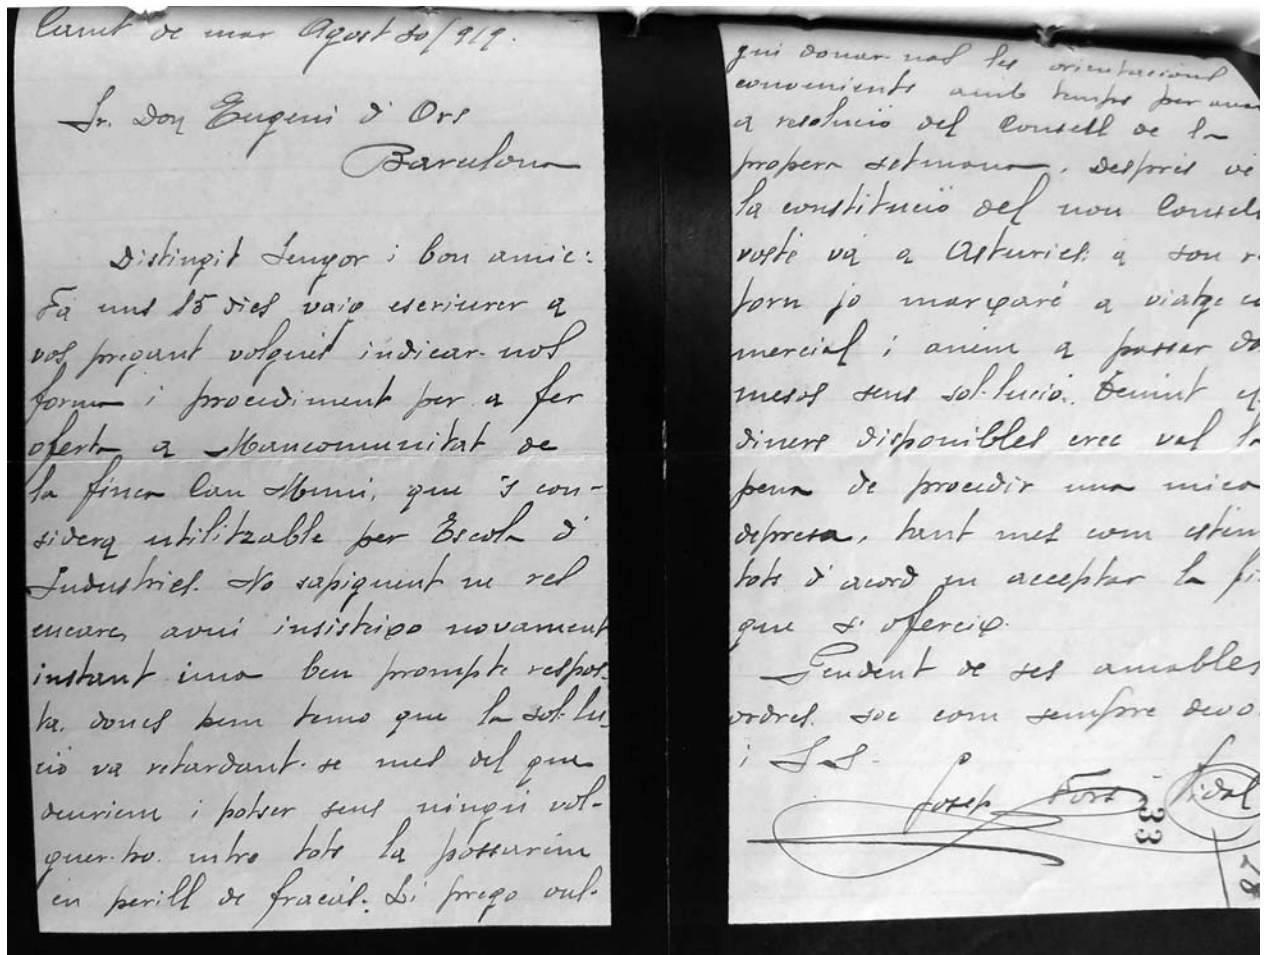 Canet de mar Agost 30/919.
Sr. Don Eugeni d'Ors
Barcelona
Distingit Senyor i bon amic:
Fa uns 15 dies vaig escriurer a
vos pregant volgués indicar-nos
forma i procediment per a fer
oferta a Mancomunitat de
la finca Can Muní, que 's con-
sidera utilitzable per Escola d'
Industries. No sapiguent ne res
encare, avui insisteixo novament
instant una ben prompte respos-
ta, doncs bem temo que la sol·lu-
ció va retardant-se mes del que
deuriem i potser sens ningú vol-
guer-ho entre tots la possarem
en perill de fracás. Li prego vul-
gui donar-nos les orientacions
convenients amb temps per
a resolució del Consell de la
propera setmana. Després
la constitució del nou Consell
vosté va a Asturies: a son re
torn jo marxaré a viatge co
mercial i anem a passar dos
mesos sens sol·lució. Tenint
diners disponibles crec val la
pena de procedir una mica
depresa, tant mes com estem
tots d'acord en acceptar la fi
que s'ofereix.
Pendent de ses amables
ordres. soc com sempre devo
i S. S.
Josep Fors Vidal
33